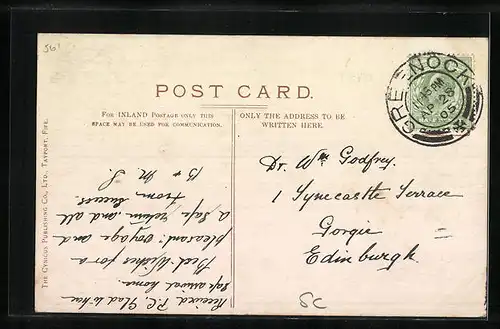 561
POST CARD.
FOR INLAND POSTAGE ONLY THIS
SPACE MAY BE USED FOR COMMUNICATION.
ONLY THE ADDRESS TO BE
WRITTEN HERE.
GREENOCK
AP 28
05
Dr. Wm Godfrey.
1 Synecastle Terrace
Gorgie
Edinburgh.
SC
Received P.C. Glad to hear
safe arrival home.
Best Wishes for a
pleasant voyage and
a safe return, and all
from
B & M. S.
THE CYNICUS PUBLISHING CO., LTD., TAYPORT, FIFE.